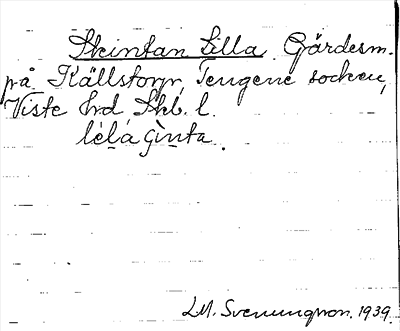 Skintan Lilla. Gärdesm.
på Källstorp, Tengene socken,
Viste hrd Skb. l.
lèlá ɕìnta.
LM. Svenungson. 1939.